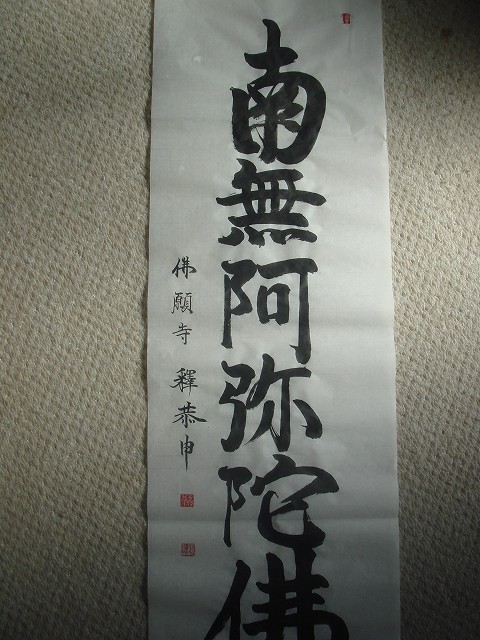 南無阿弥陀佛
佛願寺 釋恭申